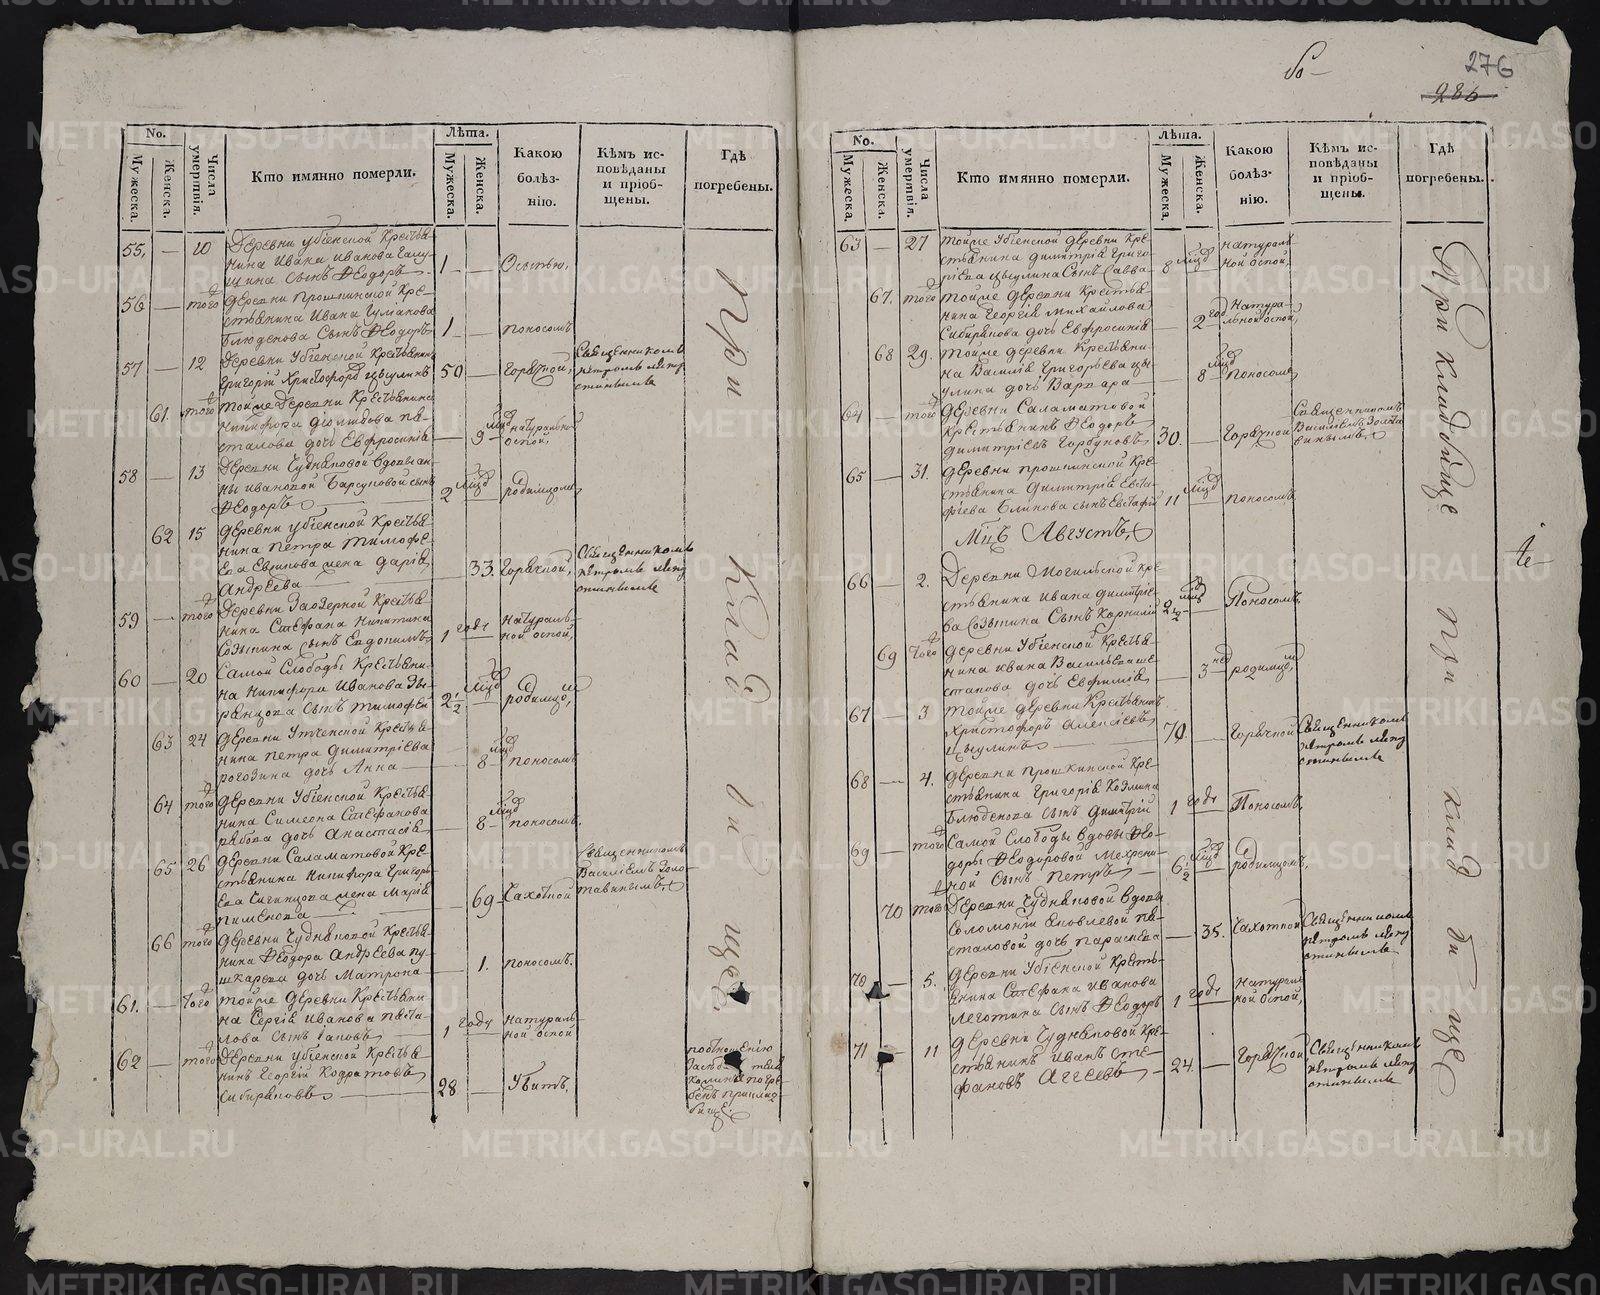 276
286
No.
Мужеска.
Женска.
Числа умертвія.
Кто имянно померли.
Лѣта.
Мужеска.
Женска.
Какою болѣз-
нію.
Кѣмъ ис-
повѣданы
и пріоб-
щены.
Гдѣ
погребены.
55, — 10 Деревни Убіенской Крестья-
нина Ивана Иванова
сынъ Ѳеодоръ 1 —
56 — того деревни Прошкинской Кре-
стьянина Ивана
Блюденова Сынъ Ѳеодоръ 1 — поносомъ
57 — 12 Деревни Убіенской Крестьянинъ
Григорій Христофоровъ Цыулинъ 50 — горячкой, Священникомъ
Петромъ
61 того тойже Деревни Крестьянина
Никифора
дочь Евфросинія — 9 мцовъ натуральной
оспой,
58 — 13 Деревни Чудняковой вдовы Ан-
ны Ивановой Барсуковой сынъ
Ѳеодоръ 2 мцовъ родимцомъ
62 15 деревни Убіенской Крестья-
нина Петра Тимофе-
ева жена Дарія
Андреева — 33. горячкой, Священникомъ
Петромъ
59 — того Деревни Заозерной Крестья-
нина Стефана Никитина
Созыкина сынъ Евдокимъ 1 годъ натураль-
ной оспой,
60 — 20 Самой Слободы Крестьяни-
на Никифора Иванова Зы-
рянцова Сынъ Тимофей 2½ мцовъ родимцомъ,
63 24 деревни Утченской Крестья-
нина Петра Димитріева
Рогозина дочь Анна — 8 мцовъ поносомъ
64 того деревни Убіенской Крестья-
нина Симеона Стефанова
Рябова дочь Анастасія — 8 мцовъ поносомъ.
65 26 деревни Саламатовой Кре-
стьянина Никифора Григорь-
ева жена Марія
Пименова — 69 Чахоткой Священникомъ
Василіемъ Золо-
тавинымъ.
66 того деревни Чудняковой Крестья-
нина Ѳеодора Андреева Пу-
шкарева дочь Матрона — 1. поносомъ.
61. — того тойже Деревни Крестьяни-
на Сергія Иванова Песта-
лова Сынъ Іаковъ 1 годъ натураль-
ной оспой
62 — того Деревни Убіенской Крестья-
нинъ Георгій
Сибиряковъ 28 — Убитъ.
При Кладбищѣ
No.
Мужеска.
Женска.
Числа умертвія.
Кто имянно померли.
Лѣта.
Мужеска.
Женска.
Какою
болѣз-
нію.
Кѣмъ ис-
повѣданы
и пріоб-
щены.
Гдѣ
погребены.
63 — 27 тойже Убіенской деревни Кре-
стьянина Димитрія Григо-
ріева Цыулина Сынъ Савва 8 мцовъ натураль-
ной оспой,
67. того тойже деревни Крестья-
нина Георгія Михайлова
Сибирякова дочь Евфросинія — 2 год натура-
льной оспой,
68 29. тойже деревни Крестьяни-
на Василія Григорьева Цы-
улина дочь Варвара — 8 мцовъ поносомъ
64 — того деревни Саламатовой
Крестьянинъ Ѳеодоръ
Димитріевъ Горбуновъ 30. — горячкой Священникомъ
Василіемъ Золота-
винымъ.
65 — 31. деревни Прошкинской Кре-
стьянина Димитрія Евста-
фіева Блинова сынъ Евстафій 11 мцовъ поносомъ
Мцъ Августъ,
66 — 2. Деревни Могильской Кре-
стьянина Ивана Димитріе-
ва Созыкина Сынъ Корнилій 2½ мцовъ Поносомъ,
69 того деревни Убіенской Крестья-
нина Ивана Васильева Ше-
стакова дочь Евфимія — 3 нед родимцомъ,
67 — 3 тойже деревни Крестьянинъ
Христофоръ Алексіевъ
Цыулинъ 70. — Горячкой Священникомъ
Петромъ
68 — 4. деревни Прошкинской Кре-
стьянина Григорія Козмина
Блюденова Сынъ Димитрій 1 годъ Поносомъ,
69 — того Самой Слободы вдовы Ѳео-
доры Ѳеодоровой Мехрени-
ной Сынъ Петръ 6½ мцовъ родимцомъ,
70 того Деревни Чудняковой вдовы
Соломоніи Яковлевой Пе-
сталовой дочь Параскева — 35. Чахоткой Священникомъ
Петромъ
70 — 5. деревни Убіенской Кресть-
янина Стефана Иванова
Леготина Сынъ Ѳеодоръ 1 годъ натураль-
ной оспой,
71 — 11 деревни Чудняковой Кре-
стьянинъ Иванъ Сте-
фановъ Агеевъ 24. — горячкой Священникомъ
Петромъ
При кладбищѣ
При кладбищѣ
METRIKI.GASO-URAL.RU